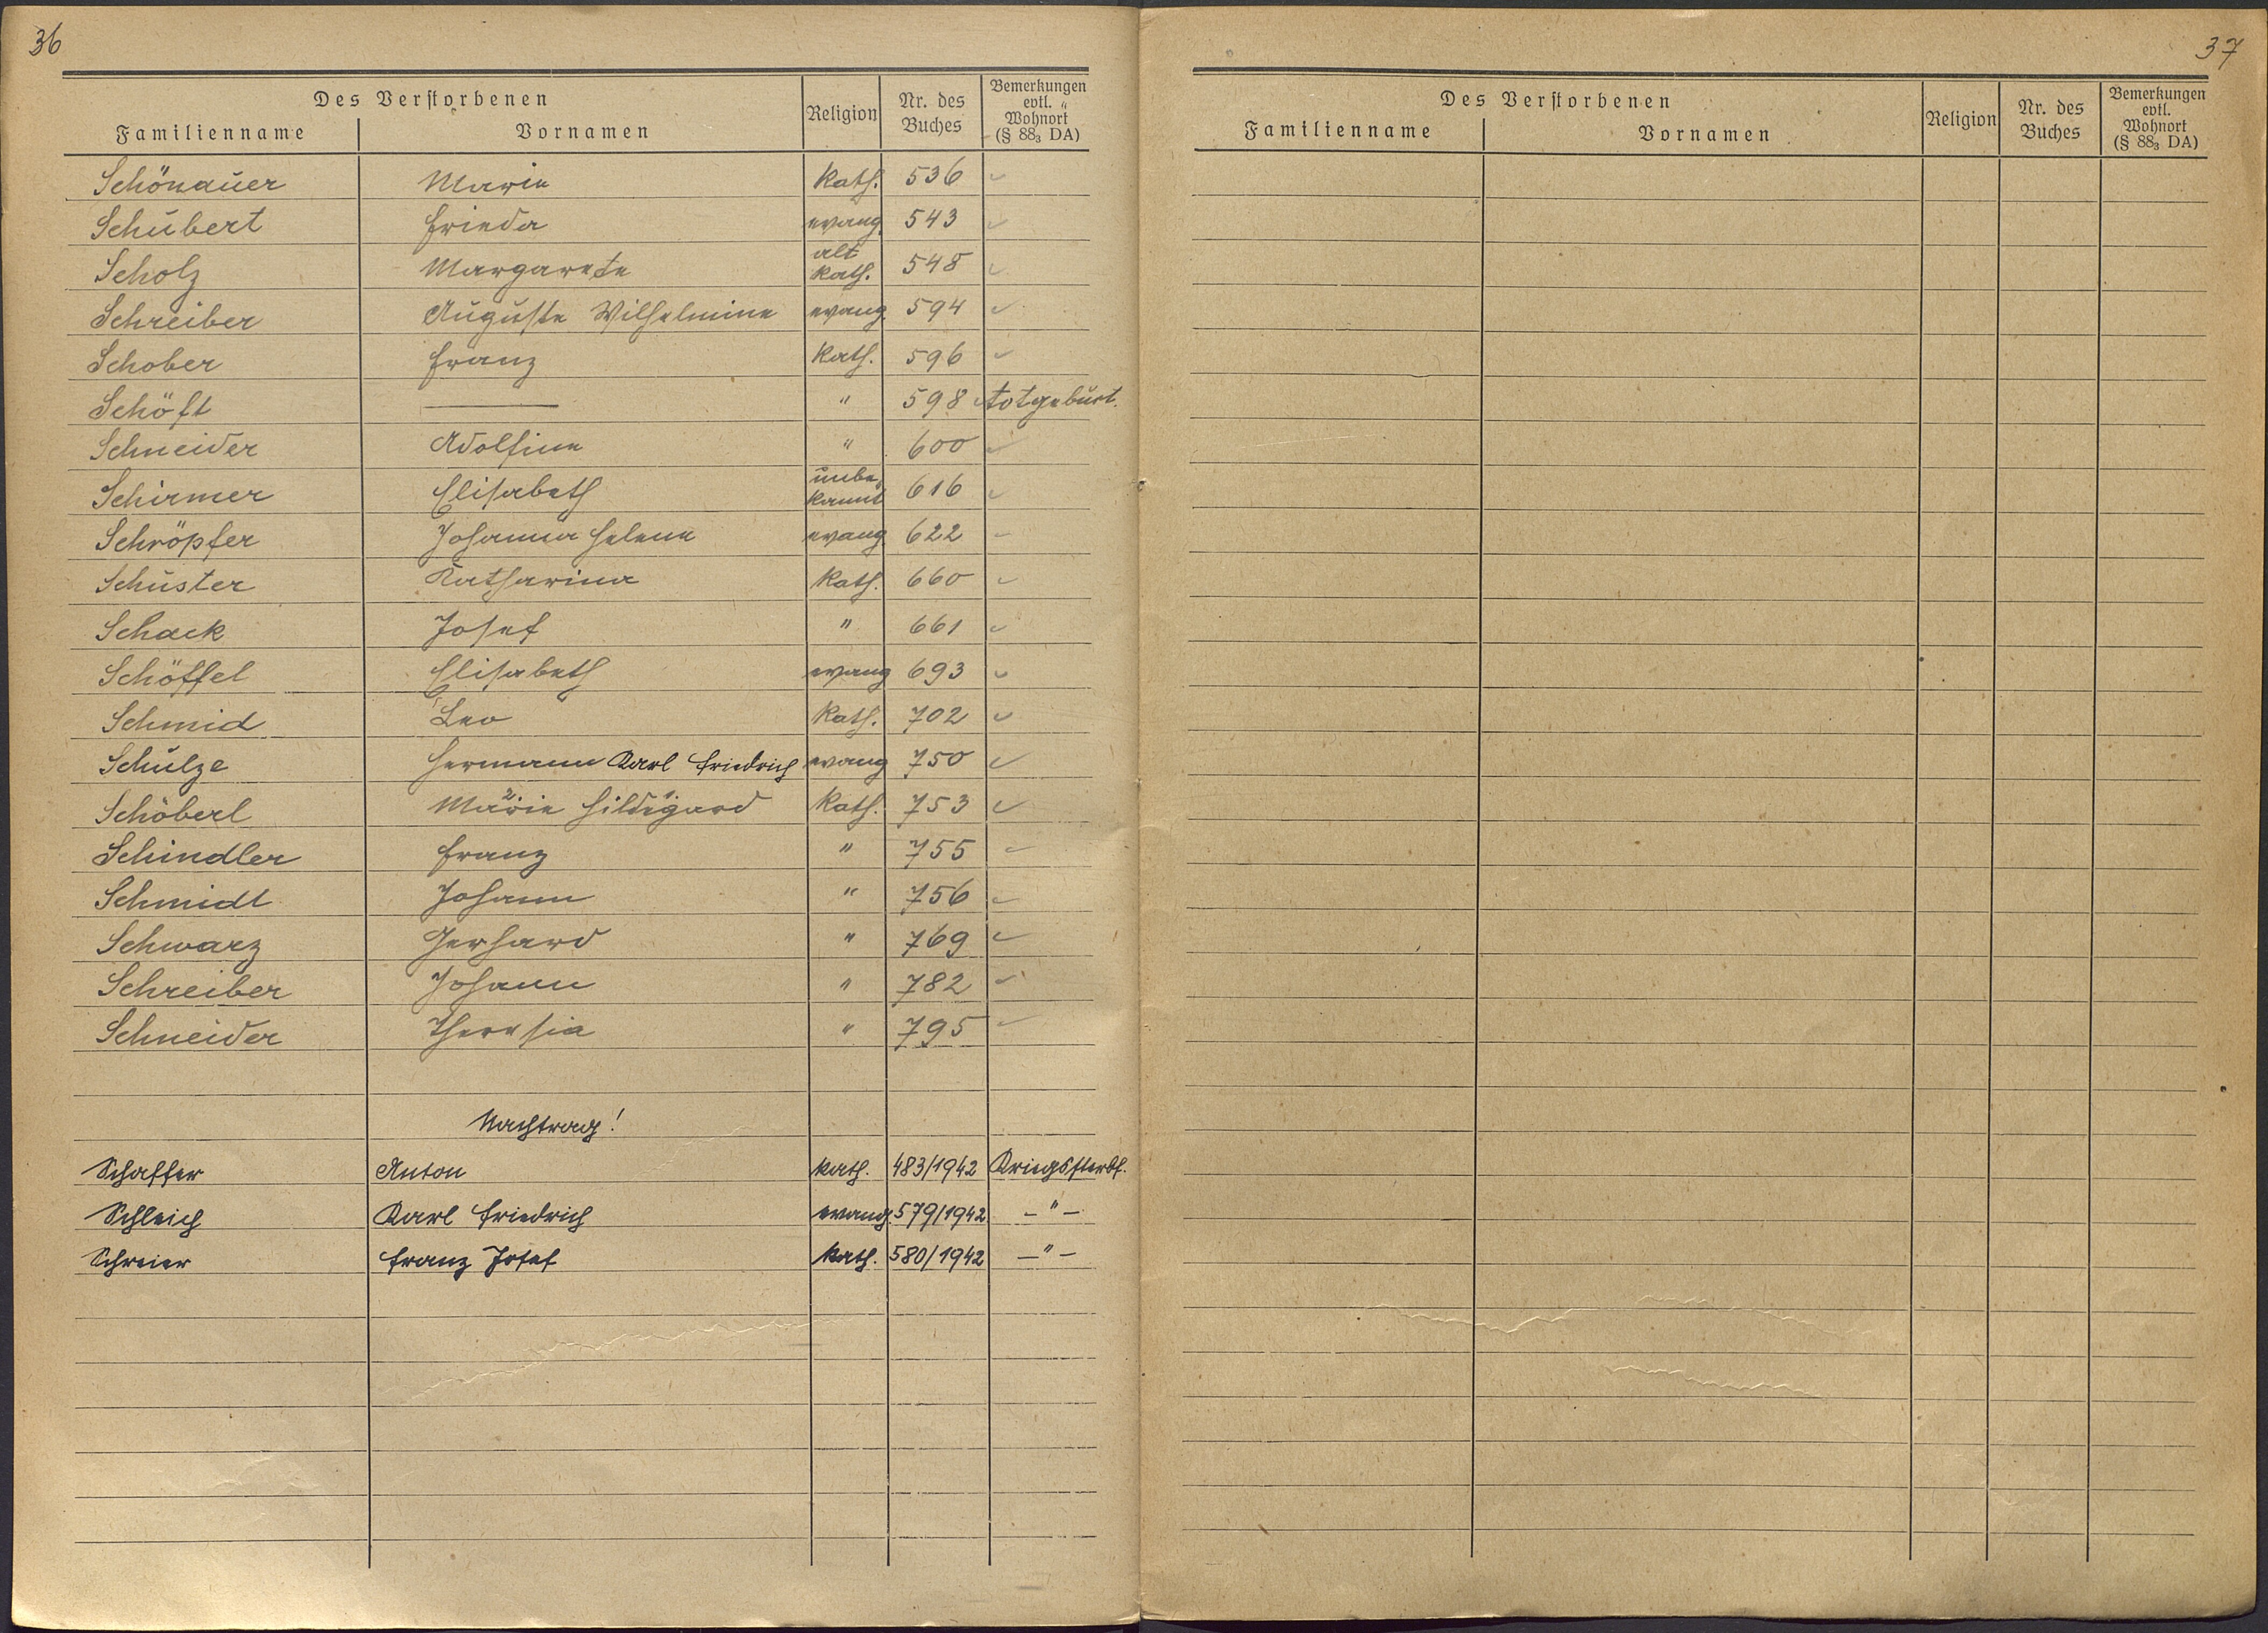 36
Des Verstorbenen
Familienname Vornamen Religion Nr. des Buches Bemerkungen evtl. Wohnort (§ 88₃ DA)
Schönauer Marie kath. 536 ✓
Schubert Frieda evang. 543 ✓
Scholz Margarete alt kath. 548 ✓
Schreiber Auguste Wilhelmine evang. 594 ✓
Schober Franz kath. 596 ✓
Schöft — " 598 Totgeburt.
Schneider Adolfine " 600 ✓
Schirmer Elisabeth unbekannt 616 ✓
Schröpfer Johanna Helene evang. 622 ✓
Schuster Katharina kath. 660 ✓
Schack Josef " 661 ✓
Schöffel Elisabeth evang 693 ✓
Schmid Leo kath. 702 ✓
Schulze Hermann Karl Friedrich evang 750 ✓
Schöberl Marie 2 Hildegard 1 kath. 753 ✓
Schindler Franz " 755 ✓
Schmidt Johann " 756 ✓
Schwarz Gerhard " 769 ✓
Schreiber Johann " 782 ✓
Schneider Theresia " 795 ✓
Nachtrag!
Schaffer Anton kath. 483/1942 Kriegssterbf.
Schleich Karl Friedrich evang. 579/1942 – " –
Schreier Franz Josef kath. 580/1942 – " –
37
Des Verstorbenen
Familienname Vornamen Religion Nr. des Buches Bemerkungen evtl. Wohnort (§ 88₃ DA)